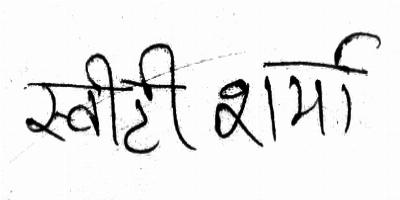 स्वीटी शर्मा